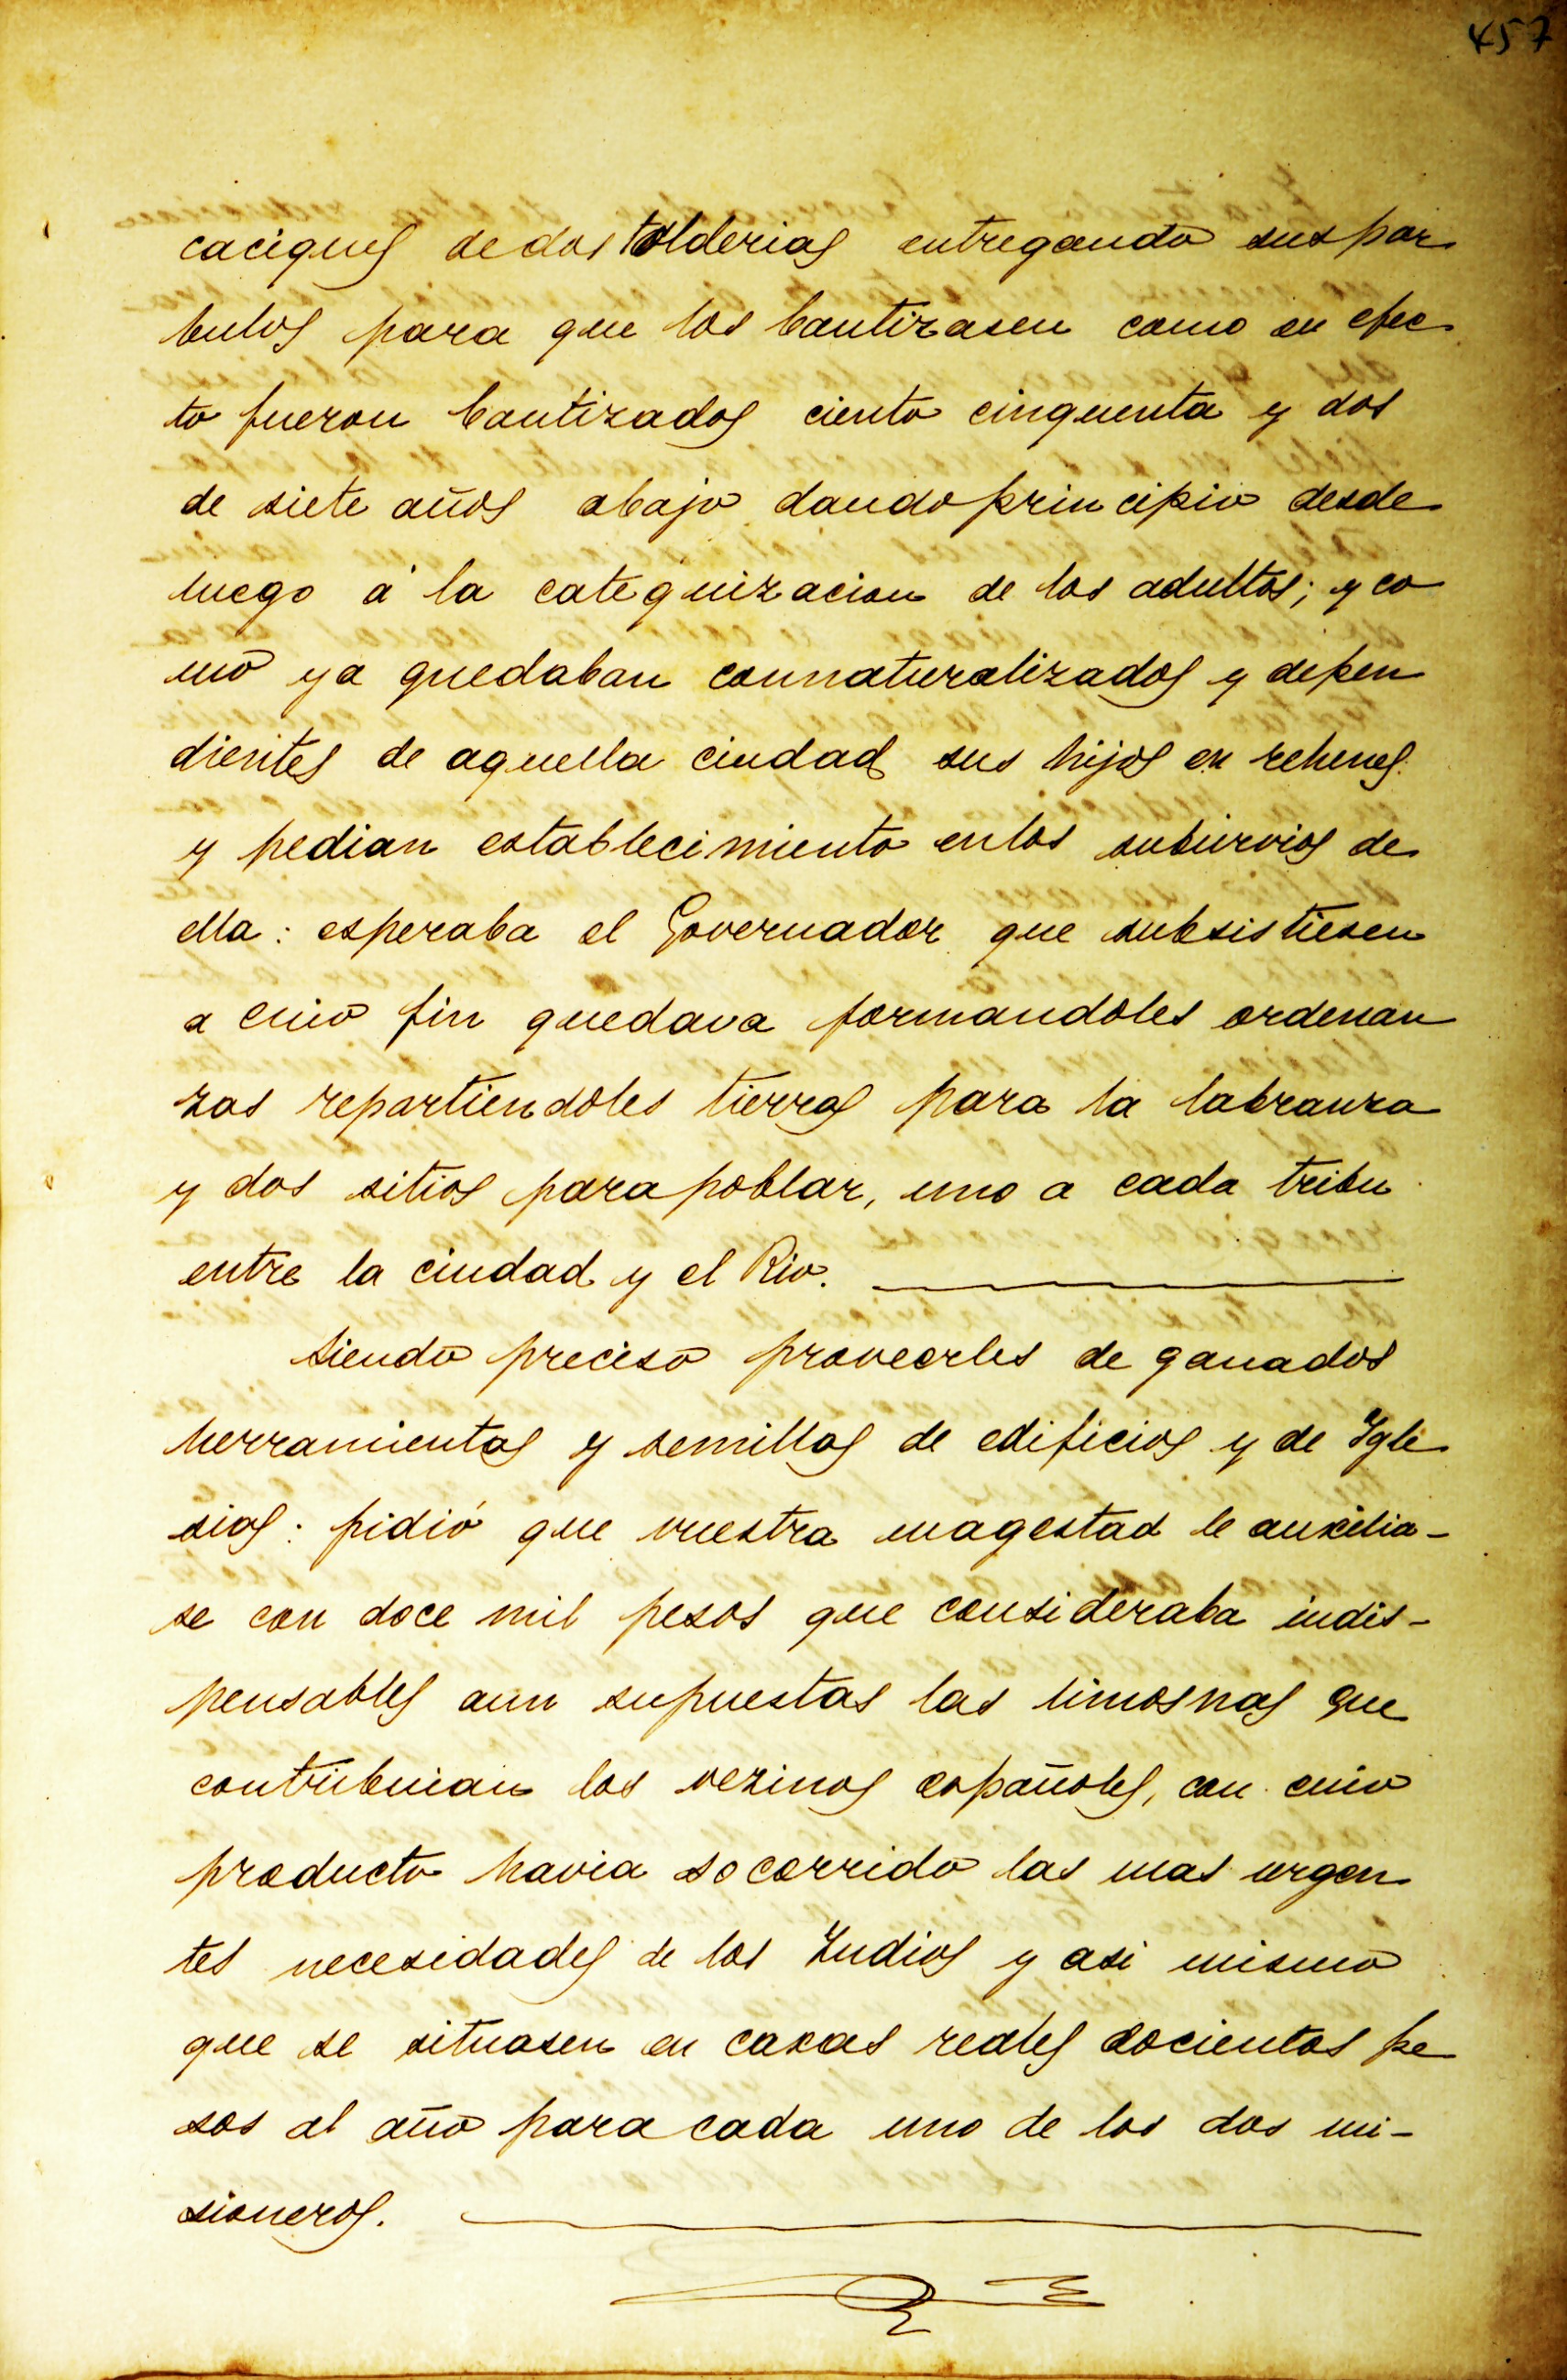 457
caciques de dos tolderias entregando sus par
bulos para que los bautizasen como en efec
to fueron bautizados ciento cinquenta y dos
de siete años abajo dando principio desde
luego á la catequizacion de los adultos; y co
mo ya quedaban connaturalizados y depen
dientes de aquella ciudad sus hijos en rehenes
y pedian establecimiento en los suburvios de
ella: esperaba el Governador que subsistiesen
a cuio fin quedava formandoles ordenan
zas repartiendoles tierras para la labranza
y dos sitios para poblar, uno a cada tribu
entre la ciudad y el Rio.
siendo preciso proveerles de ganados
herramientas y semillas de edificios y de Ygle
sias: pidió que vuestra magestad le auxilia-
se con doce mil pesos que consideraba indis-
pensables aun supuestas las limosnas que
contribuian los vezinos españoles, con cuio
producto havia socorrido las mas urgen
tes necesidades de los Yndios y asi mismo
que se situasen en caxas reales docientos pe
sos al año para cada uno de los dos mi-
sioneros.